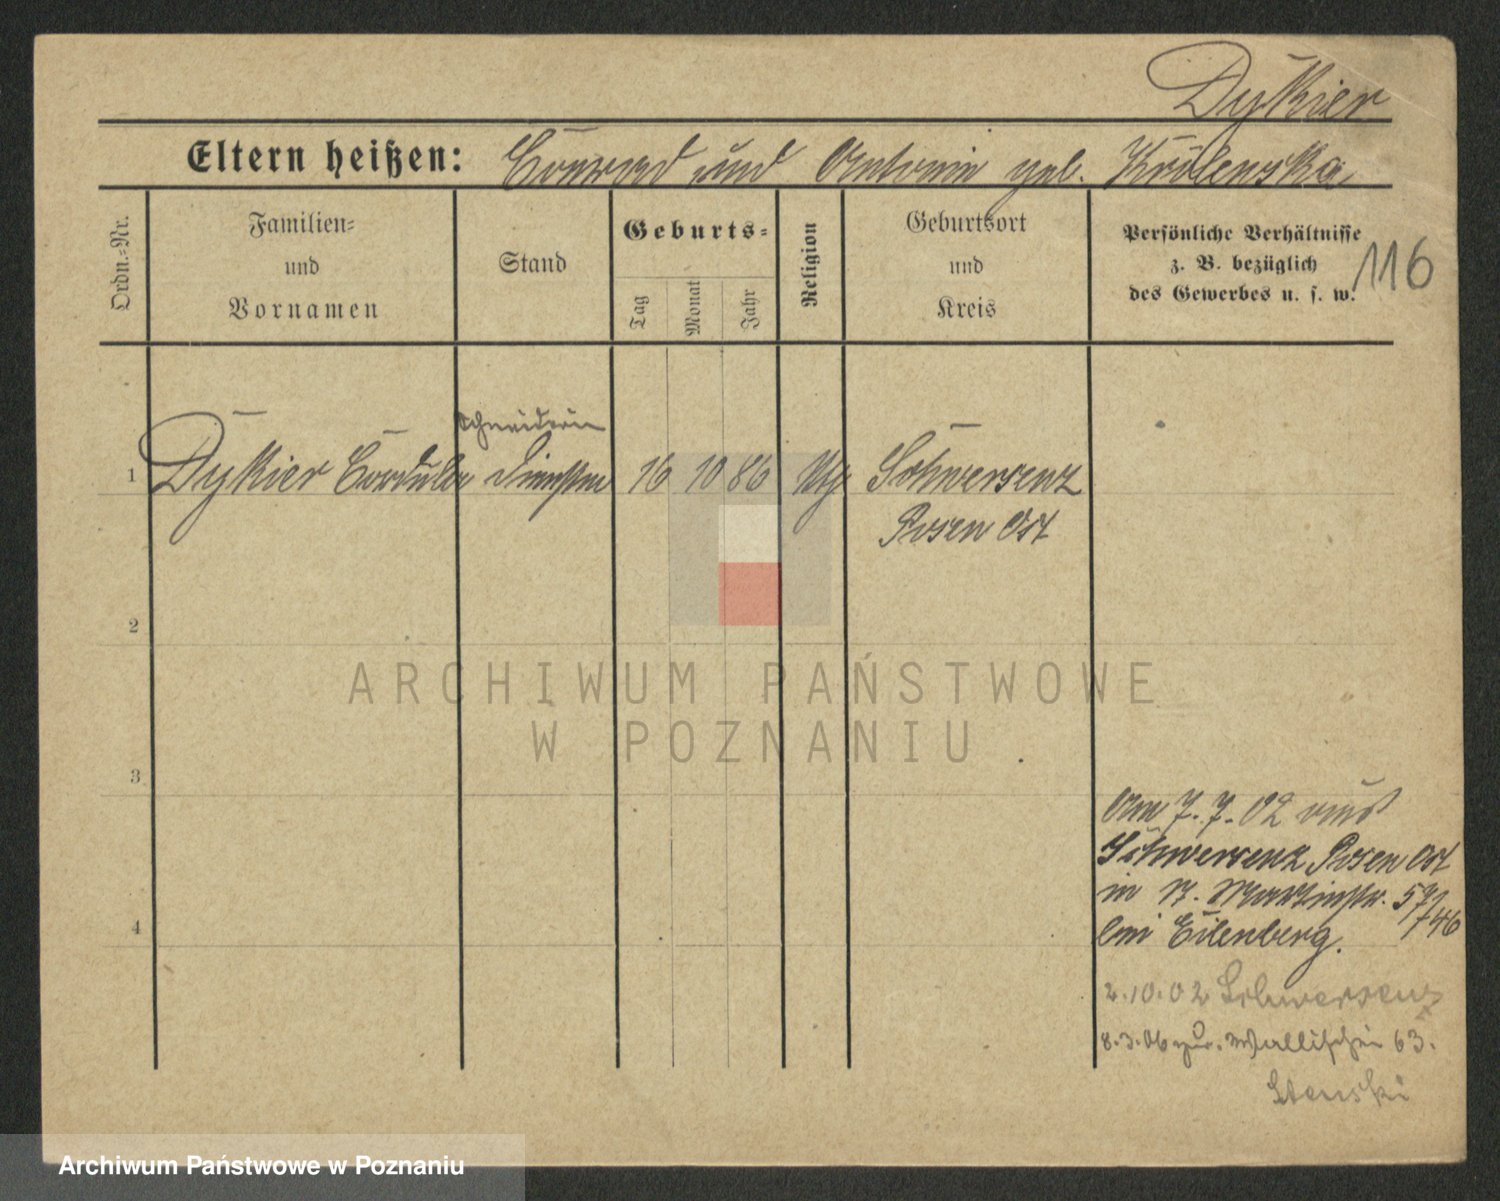 Dykier
Eltern heißen: Conrad und Antonie geb. Krölenska
Ordn.-Nr.
Familien-
und
Vornamen
Stand
Geburts-
Tag
Monat
Jahr
Religion
Geburtsort
und
Kreis
Persönliche Verhältnisse
z. B. bezüglich
des Gewerbes u. s. w.
116
Schneiderin
1 Dykier Cordula 16 10 86 Schwersenz
Posen Ost
2
3
4
Am 7.7.02 aus
Schwersenz Posen Ost
in St. Martinstr. 57/46
bei Eilenberg.
2.10.02 Schwersenz
8.3.06 zur. Wallischei 63.
Stenski
ARCHIWUM PAŃSTWOWE
W POZNANIU
Archiwum Państwowe w Poznaniu